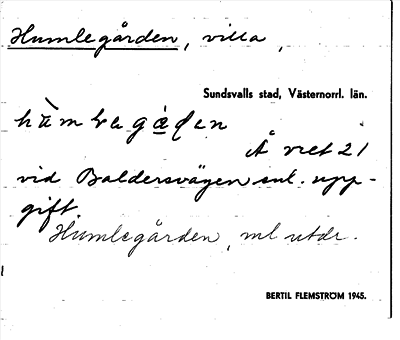 Humlegården, villa,
Sundsvalls stad, Västernorrl. län.
Å vret 21
vid Baldersvägen enl. upp-
gift.
Humlegården, ml utdr.
BERTIL FLEMSTRÖM 1945.